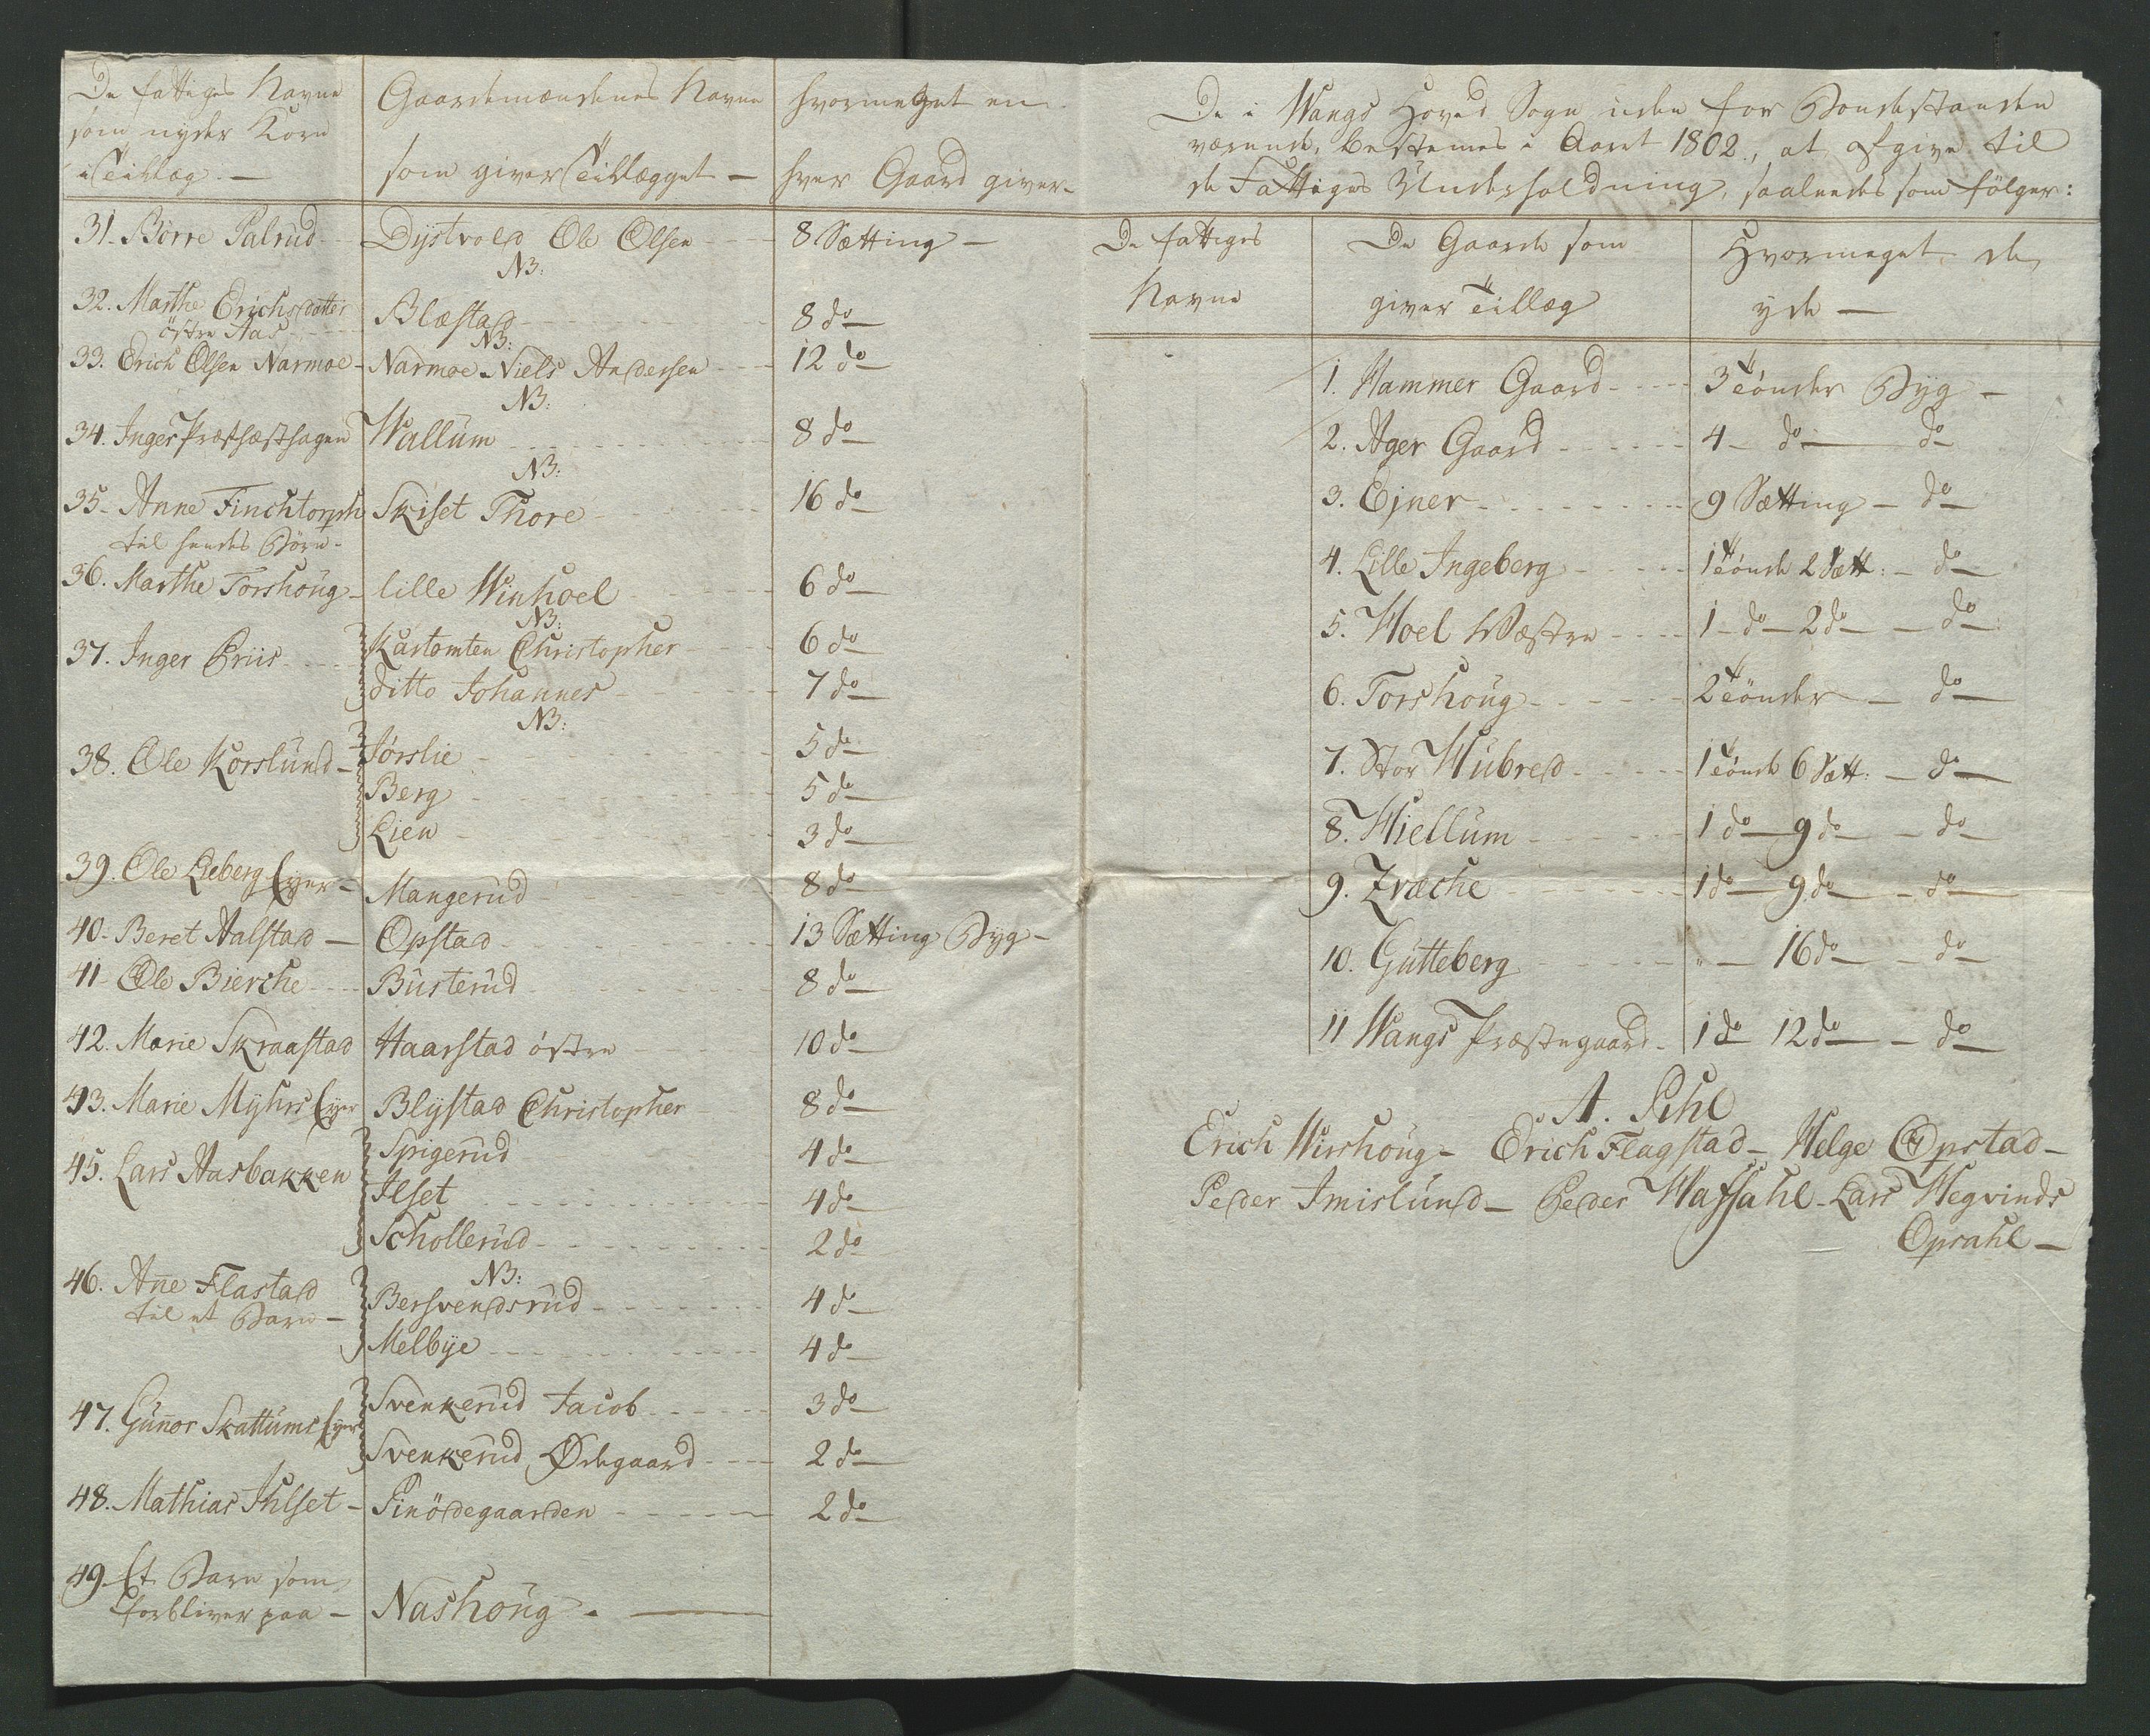 De fattiges Navne | Gaardemændenes Navne | hvormeget en
som nyder Korn
i Tillæg. — | som giver Tillægget — | hver Gaard giver-
31. Börre Palrud | Dystvold Ole Olsen | 8 Sætting —
NB:
32. Marthe Erichsdatter | Blæstad | 8 do
östre Aas
NB:
33. Erich Olsen Narmoe | Narmoe Niels Andersen | 12 do
NB:
34. Inger Præsthæsthagen | Wallum | 8 do
NB:
35. Anne Finchtorph | Skiset Thore | 16 do
til hendes Börn
36. Marthe Torshoug | lille Winhoel | 6 do
NB:
37. Inger Griis | Kastomten Christopher | 6 do
ditto Johannes | 7 do
NB:
38. Ole Korslund | Jørslie | 5 do
Berg | 5 do
Lien | 3 do
39. Ole Lieberg Eyer | Mangerud | 8 do
40. Beret Aalstad — | Opstad | 13 Sætting Byg —
41 Ole Bierche | Busterud | 8 do
42. Marie Skraastad | Haarstad östre | 10 do
43. Marie Myhrs Eyer | Blystad Christopher | 8 do
45. Lars Aasbakken | Sprigerud | 4 do
Ilset | 4 do
Schollerud | 2 do
NB:
46. Ane Flastad | Bersvendsrud | 4 do
til et Barn —
Melbye | 4 do
47. Gunor Skattums Eyer | Svenkerud Jacob | 3 do
Svenkerud Ødegaard | 2 do
48. Mathias Ihlset | Pinödegaarden | 2 do
49 Et Barn som
forbliver paa — | Nashoug. —
De i Wangs Hoved Sogn uden for Bondestanden
værende, bestemes i Aaret 1802., at afgive til
de Fattiges Underholdning, saaledes som fölger:
De fattiges | De Gaarde som | Hvormeget de
Navne | giver Tillæg | yde —
1. Hammer Gaard | 3 Tönder Byg —
2. Ager Gaard | 4 do do
3. Ejner | 9 Sætting — do
4. Lille Ingeberg | 1 Tönde 2 Sætt: — do
5. Hoel Væstre | 1 do 2 do — do
6. Torshoug | 2 Tönder — do
7. Stor Hubred | 1 Tönde 6 Sætt: — do
8. Hiellum | 1 do 9 do — do
9. Fræche | 1 do 9 do — do
10. Gutteberg | " — 16 do — do
11 Wangs Præstegaard | 1 do 12 do — do
A. Pihl
Erich Wirshoug — Erich Flagstad — Helge Opstad —
Peder Imislund — Peder Hafsahl — Lars Hegvinds
Opsahl —